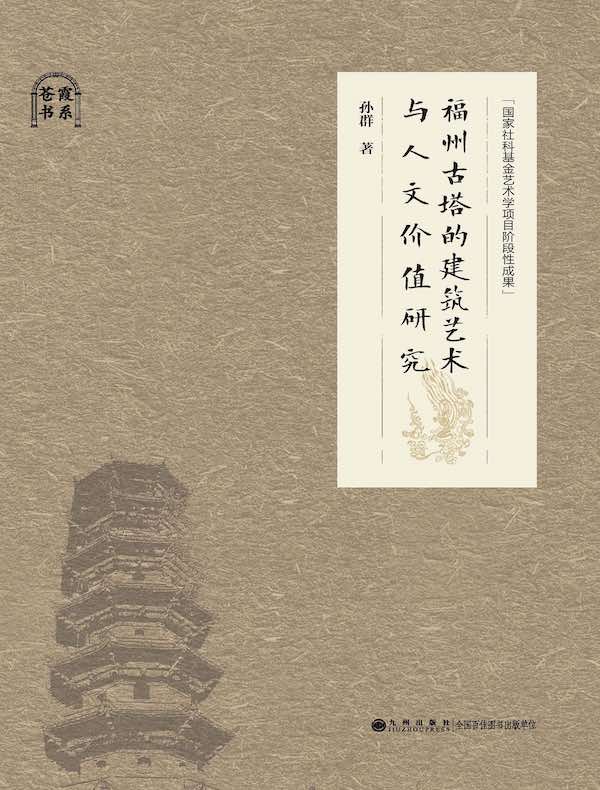 苍霞
书系
「国家社科基金艺术学项目阶段性成果」
福州古塔的建筑艺术
与人文价值研究
孙群 著
九州出版社
JIUZHOUPRESS
全国百佳图书出版单位